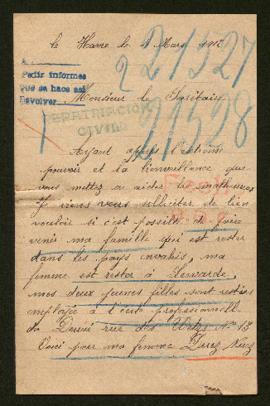 le Havre le 4 Mars 1917
21527
2
A
Pedir informes
que se hace asi
devolver.
Monsieur le Secrétaire
REPATRIACION
CIVIL
21528
Ayant appris l'extrême
pouvoir et la bienveillance que
vous mettez a aider les
Je viens vous solliciter de bien
vouloir si c'est possible de faire
venir ma famille qui est rester
dans les pays envahis, ma
femme est rester à Lewarde
mes deux jeunes filles sont restées
à professionnelle
de Douai rue des N° 13
Voici pour ma femme